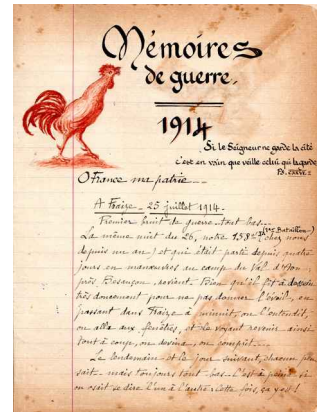 Mémoires
de guerre.
1914
Si le Seigneur ne garde la cité
c'est en vain que veille celui qui la garde
Ps.
O France ma patrie
A Fraize. 25 juillet 1914.
Premier bruit de guerre tout bas
La même nuit du 26, notre 158e (1er Bataillon) (chez nous
depuis un an) et qui était parti depuis quatre
jours en manœuvres au camp du Val d'
près Besançon, revient. Bien qu'il fît à dessein
très doucement pour ne pas donner l'éveil, en
passant dans Fraize à minuit, on l'entendit,
on alla aux fenêtres, et le voyant revenir ainsi
tout à coup, on devina, on comprit
Le lendemain et le jour suivant, chacun le
sait, mais toujours tout bas C'est à peine si
on osait se dire l'un à l'autre : cette fois, ça y est !